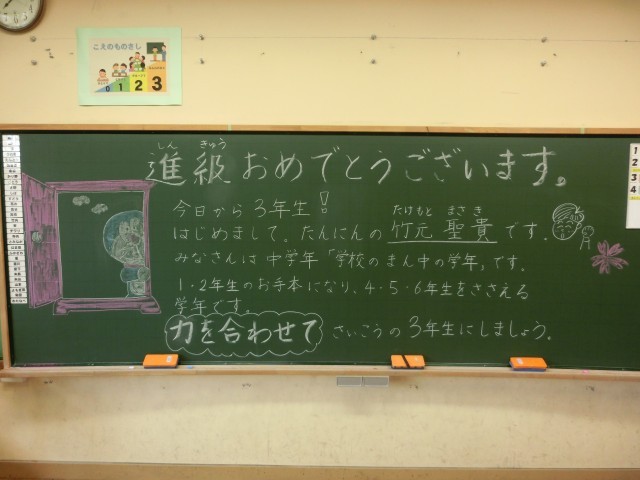 こえのものさし
0 1 2 3
しん きゅう
進級おめでとうございます。
今日から3年生!
たけもと まさき
はじめまして。たんにんの 竹元 聖貴 です.
みなさんは 中学年「学校のまん中の学年」です.
1・2年生のお手本になり、4・5・6年生をささえる
学年です。
力を合わせて さいこうの3年生にしましょう。
1
2
3
4